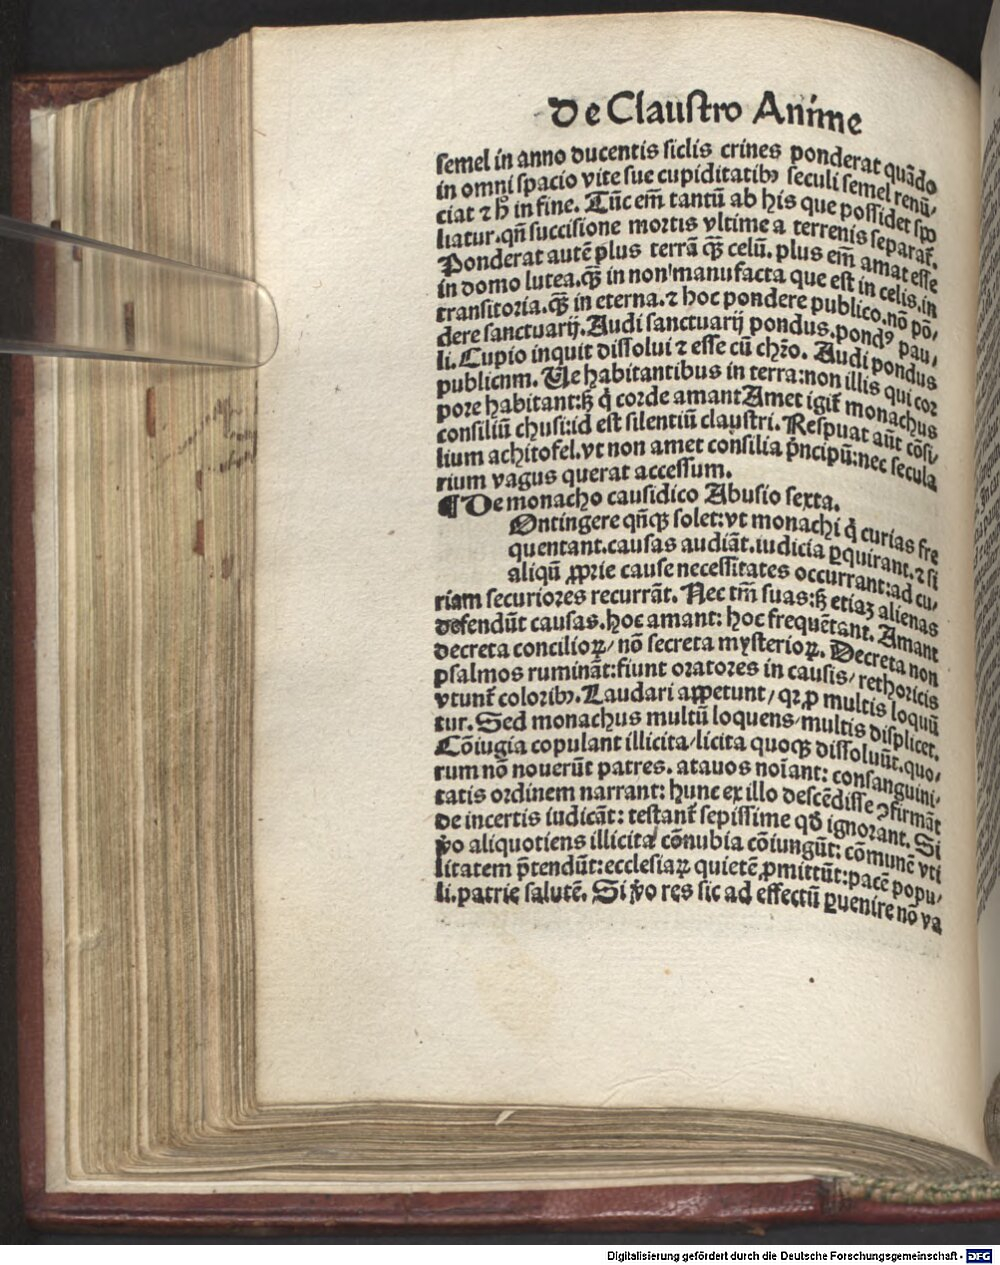 De Claustro Anime
semel in anno ducentis siclis crines ponderat quãdo
in omni spacio vite sue cupiditatibꝫ seculi semel renũ⸗
ciat ⁊ ħ in fine. Tũc em̃ tantũ ab his que possidet spo
liatur.qñ succisione mortis vltime a terrenis separat̃.
Ponderat autẽ plus terrã q̃ꝫ celũ. plus em̃ amat esse
in domo lutea.q̃ꝫ in non manufacta que est in celis.in
transitoria.q̃ꝫ in eterna.⁊ hoc pondere publico.nõ põ⸗
dere sanctuarij. Audi sanctuarij pondus.pondꝰ pau⸗
li. Cupio inquit dissolui ⁊ esse cũ chr̃o. Audi pondus
publicnm. Ue habitantibus in terra:non illis qui cor
pore habitant:ꝸ q̇ corde amant Amet igit̃ monachus
consiliũ chusi:id est silentiũ claustri. Respuat aũt cõsi⸗
lium achitofel.vt non amet consilia p̃ncipũ:nec secula
rium vagus querat accessum.
¶ De monacho causidico Abusio sexta.
Ontingere qñqꝫ solet:vt monachi q̇ curias fre
quentant.causas audiãt.iudicia ꝑquirant.⁊ si
aliqũ ꝓprie cause necessitates occurrant:ad cu⸗
riam securiores recurrãt. Nec tm̃ suas:ꝸ etiaꝫ alienas
defendũt causas.hoc amant: hoc frequẽtant. Amant
decreta concilioꝝ/ nõ secreta mysterioꝝ. Decreta non
psalmos ruminãt:fiunt oratores in causis/ rethoricis
vtunt̃ coloribꝫ. Laudari appetunt/ qꝛ ꝓ multis loquũ
tur. Sed monachus multũ loquens/multis displicet.
Cõiugia copulant illicita/licita quoqꝫ dissoluũt.quo⸗
rum nõ nouerũt patres. atauos noĩant: consanguini⸗
tatis ordinem narrant: hunc ex illo descẽdisse ꝯfirmãt
de incertis iudicãt: testant̃ sepissime qđ ignorant. Si
v̊o aliquotiens illicita cõnubia cõiungũt: cõmunẽ vti
litatem p̃tendũt:ecclesiaꝝ quietẽ ꝓmittũt:pacẽ popu⸗
li.patrie salutẽ. Si v̊o res sic ad effectũ ꝑuenire nõ va
Digitalisierung gefördert durch die Deutsche Forschungsgemeinschaft - DFG